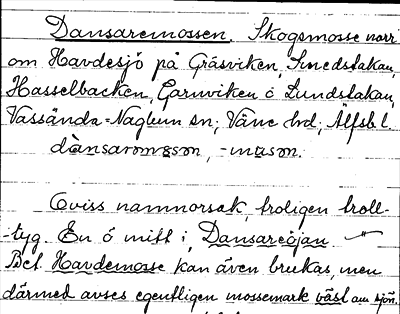 Dansaremossen. Skogsmosse norr
om Havdesjö på Gräsviken, Smedstakan,
Hasselbacken, Garnviken o Lundstakan,
Vassända-Naglum sn, Väne hd, Älfsb. l.
dànsarom
Oviss namnorsak, troligen troll-
-tyg. En ö mitt i, Dansareöjan.
Bet. Havdemosse kan även brukas, men
därmed avses egentligen mossemark väst om sjön.